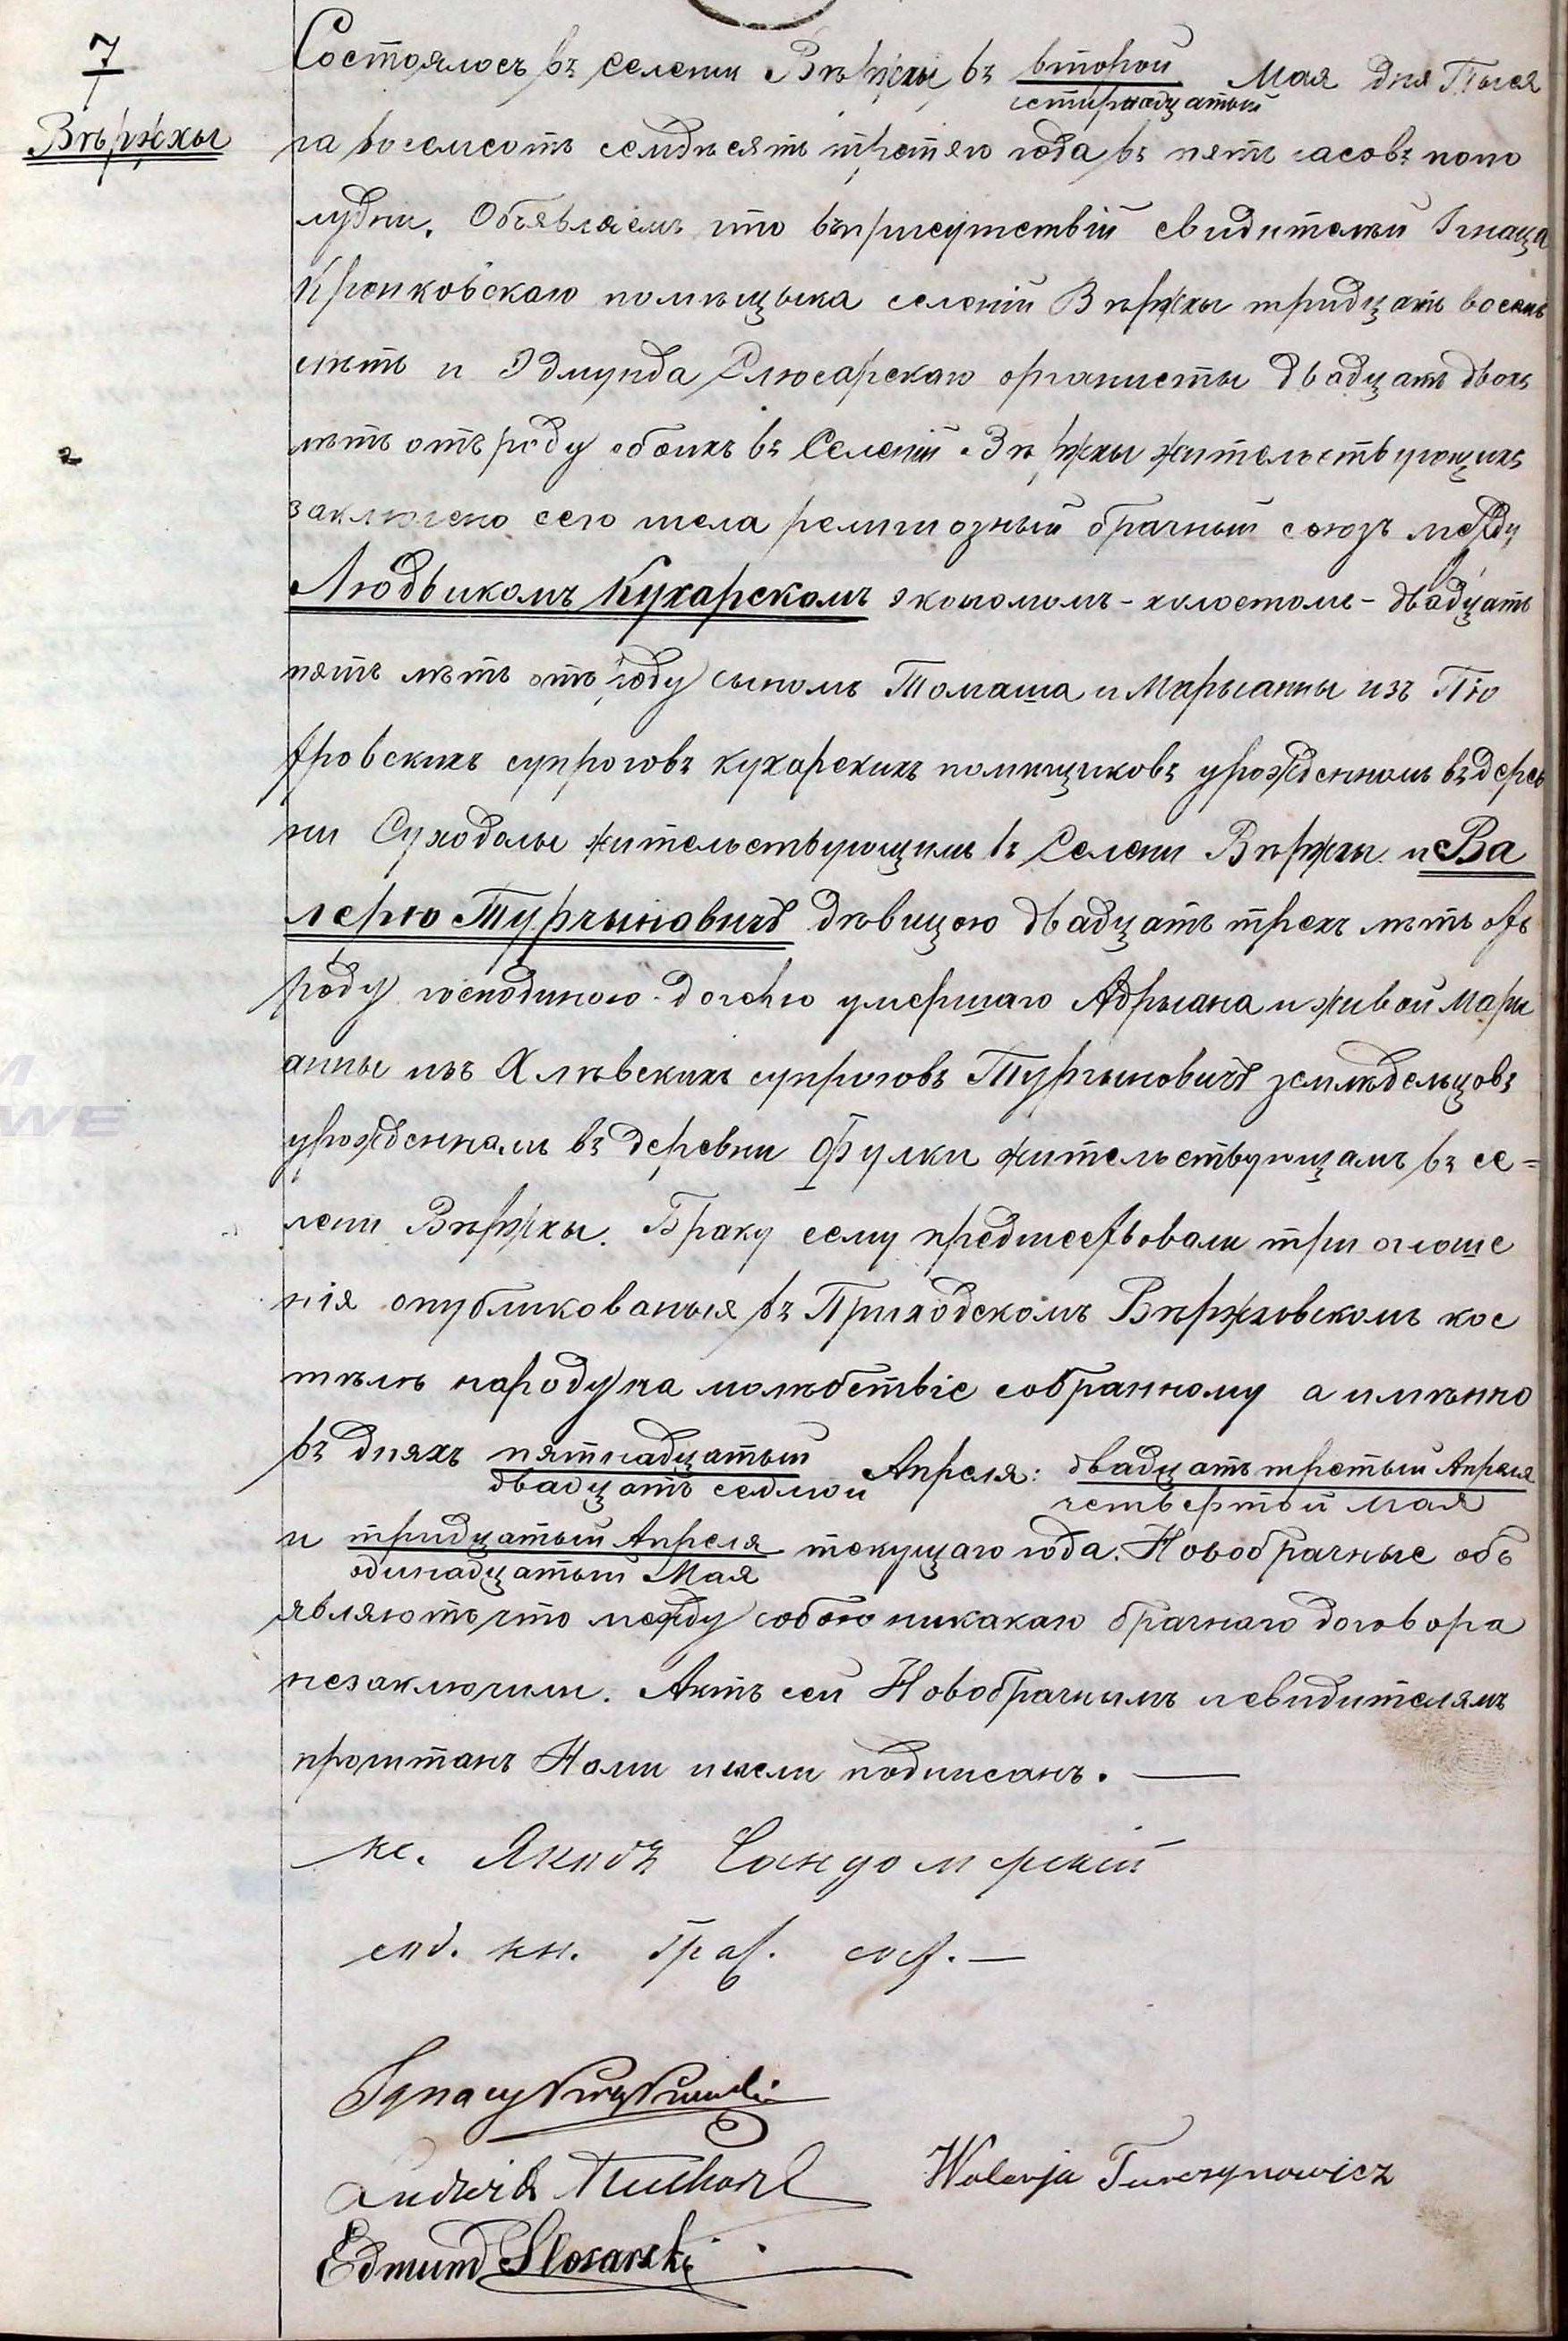 7
Вѣржхы
Состоялось въ селени Вѣржхы, въ второй Мая дня Тыся
четырнадцатый
ча восемсотъ семдѣсятъ третяго года въ пять часовъ попо
лудни. Объявляемъ что въприсутствій свидителѣй Игнаца
помѣщыка селеній Вѣржхы тридцать восемь
лѣтъ и Эдмунда Слюсарскаго органисты двадцать двохъ
лѣтъ отъ роду обоихъ въ Селеній Вѣржхы жительствующихъ
заключено сего числа религиозный брачный союзъ между
Людвикомъ Кухарскомъ экономомъ - холостомъ - двадцать
пять лѣтъ отъ роду сыномъ Томаша и Марыанны изъ Пio
тровскихъ супроговъ Кухарскихъ помѣщиковъ урожденномъ въ дерев
ни Суходолы жительствующимъ въ Селени Вѣржхы и Ва
лерю Турчыновичъ дѣвицою двадцать трехъ лѣтъ отъ
роду господиною дочею умершаго Адрыана и живой Мары
анны изъ Хлѣвскихъ супроговъ Турчыновичъ землѣдельцовъ
урожденнамъ въ деревни Фулки жительствующамъ въ се=
лени Вѣржхы. Браку сему предшествовали три оглоше
нія опубликованыя въ Приходскомъ Вѣржховскомъ кос
тѣлѣ народу на молѣбствіе собранному а имѣнно
въ дняхъ пятнадцатый Апреля: двадцать третый Апреля
двадцать семой четвертый мая
и тридцатый Апреля текущаго года. Новобрачные объ
одинадцатый Мая
являютъ что между собою никакаго брачнаго договора
незаключили. Актъ сей Новобрачнымъ и свидителямъ
прочитанъ Нами и ими подписанъ. —
кс. Якубъ Сандомерскій
Ignacy
Ludwik Kucharski Walerja Turczynowicz
Edmund Slosarski